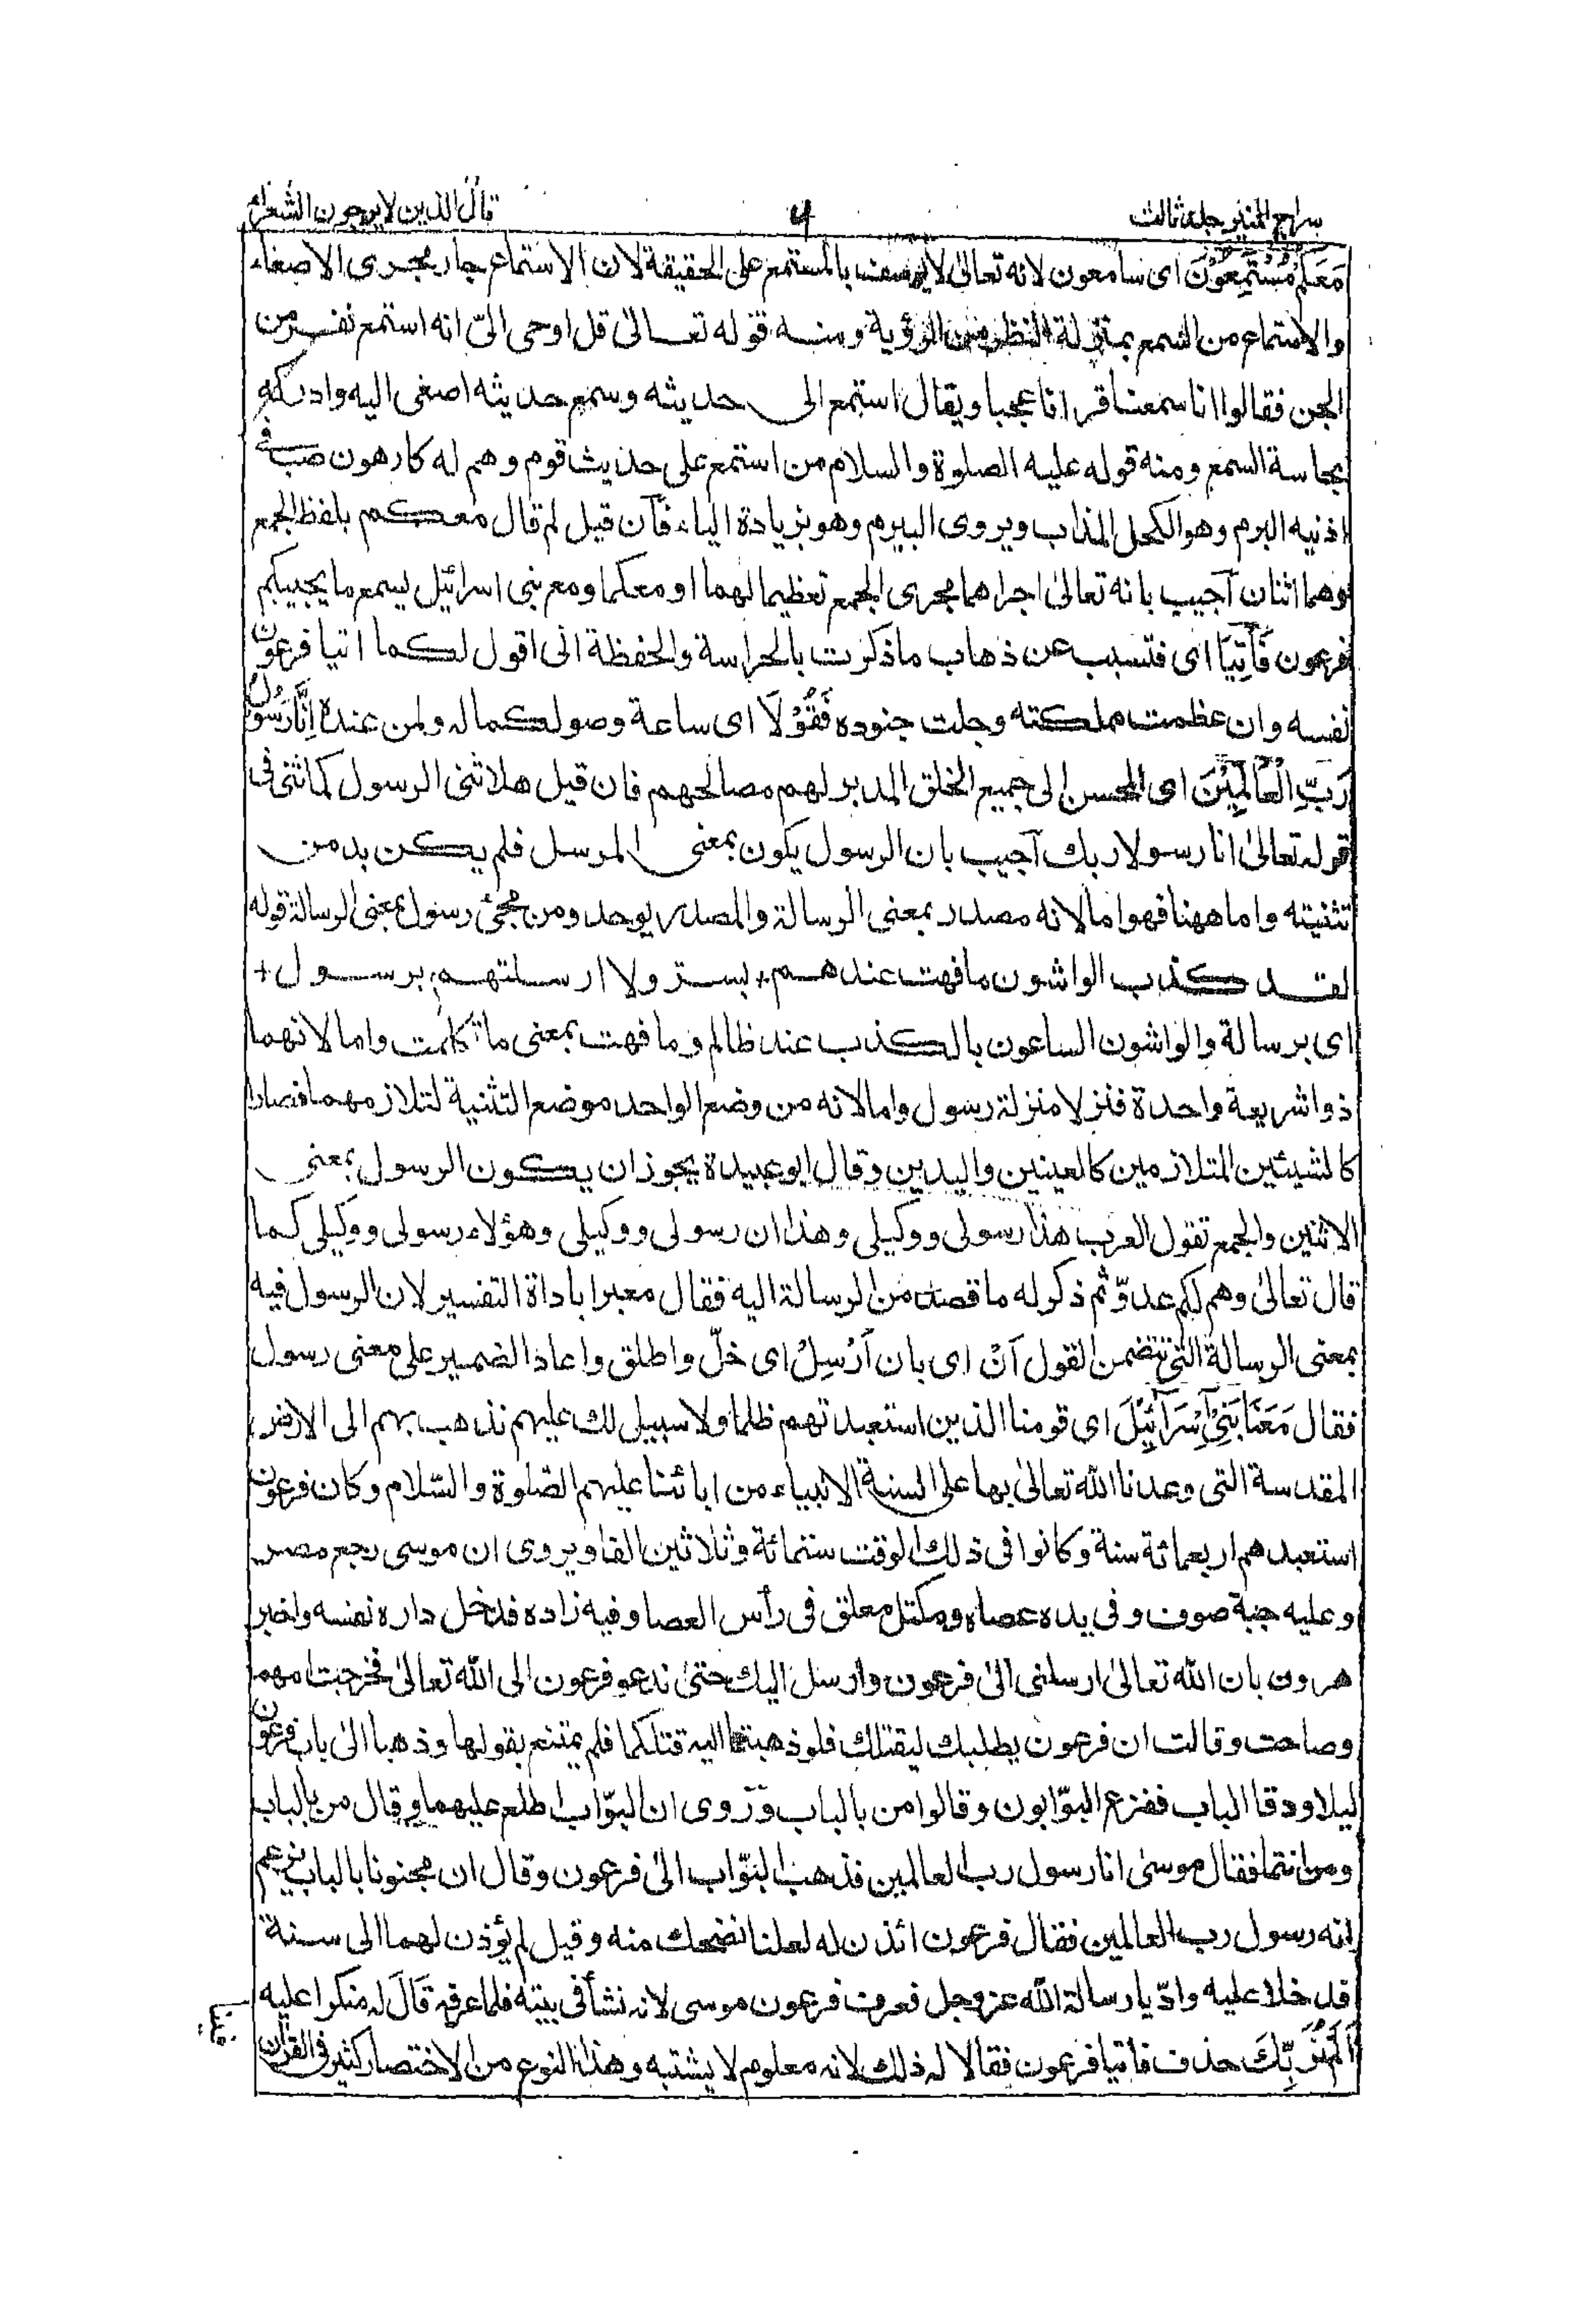 سراج المنير جلد ثالث
٦
قال الذين لا يرجون الشعراء
مَعَكُمْ مُسْتَمِعُوْنَ اى سامعون لانه تعالىٰ لا يوصف بالمستمع على الحقيقة لان الاستماع جار مجرى الاصغاء
والاستماع من السمع بمنزلة النظر من الرؤية ومنه قوله تعالىٰ قل اوحى الىّ انه استمع نفر من
الجن فقالوا انا سمعنا قرانا عجبا ويقال استمع الى حديثه وسمع حديثه اصغى اليه وادركه
بحاسة السمع ومنه قوله عليه الصلوة والسلام من استمع على حديث قوم وهم له كارهون صب فى
اذنيه البرم وهو الكحل المذاب ويروى البيرم وهو بزيادة الياء فآن قيل لم قال معكم بلفظ الجمع
وهما اثنان آجيب بانه تعالىٰ اجراهما مجرى الجمع تعظيما لهما او معكما ومع بنى اسرائيل يسمع ما يجيبكم
فرعون فَأْتِيَا اى فتسبب عن ذهاب ما ذكرت بالحراسة والحفظة انى اقول لكما اتيا فرعون
نفسه وان عظمت مملكته وجلت جنوده فَقُوْلَا اى ساعة وصولكما له ولمن عنده اِنَّا رَسُوْلُ
رَبِّ الْعَالَمِيْنَ اى المحسن الى جميع الخلق المدبر لهم مصالحهم فان قيل هلا ثنى الرسول كما ثنى فى
قوله تعالىٰ انا رسولا ربك آجيب بان الرسول يكون بمعنى المرسل فلم يكن بد من
تثنيته واما ههنا فهو اما لانه مصدر بمعنى الرسالة والمصدر يوحد ومن مجئ رسول بمعنى الرسالة قوله
لقد كذب الواشون ما فهت عندهم + بستر ولا ارسلتهم برسول +
اى برسالة والواشون الساعون بالكذب عند ظالم وما فهت بمعنى ما تكلمت واما لانهما
ذوا شريعة واحدة فنزلا منزلة رسول واما لانه من وضع الواحد موضع التثنية لتلازمهما فصارا
كالشيئين المتلازمين كالعينين واليدين وقال ابو عبيدة يجوز ان يكون الرسول بمعنى
الاثنين والجمع تقول العرب هذا رسولى ووكيلى وهذان رسولى ووكيلى وهؤلاء رسولى ووكيلى كما
قال تعالىٰ وهم لكم عدوّ ثم ذكر له ما قصد من الرسالة اليه فقال معبرا باداة التفسير لان الرسول فيه
بمعنى الرسالة التى تتضمن القول آنْ اى بان اَرْسِلْ اى خلّ واطلق واعاد الضمير على معنى رسول
فقال مَعَنَا بَنِىْ اِسْرَآئِيْلَ اى قومنا الذين استعبدتهم ظلما ولا سبيل لك عليهم نذهب بهم الى الارض
المقدسة التى وعدنا الله تعالىٰ بها على السنة الانبياء من ابائنا عليهم الصّلوة والسّلام وكان فرعون
استعبدهم اربعمائة سنة وكانوا فى ذلك الوقت ستمائة وثلاثين الفا ويروى ان موسى رجع مصر
وعليه جبة صوف وفى يده عصاه ومكتل معلق فى رأس العصا وفيه زاده فدخل داره نفسه واخبر
هرون بان الله تعالىٰ ارسلنى الىٰ فرعون وارسل اليك حتىٰ ندعو فرعون الى الله تعالىٰ فخرجت امهما
وصاحت وقالت ان فرعون يطلبك ليقتلك فلو ذهبتما اليه قتلكما فلم يمتنع بقولها وذهبا الىٰ باب فرعون
ليلا ودقا الباب ففزع البوّابون وقالوا من بالباب وَرُوى ان البوّاب اطلع عليهما وقال من بالباب
ومن انتما فقال موسىٰ انا رسول رب العالمين فذهب البوّاب الىٰ فرعون وقال ان مجنونا بالباب يزعم
انه رسول رب العالمين فقال فرعون ائذن له لعلنا نضحك منه وقيل لم يؤذن لهما الى سنة
فدخلا عليه وادّيا رسالة الله عز وجل فعرف فرعون موسى لانه نشأ فى بيته فلما عرفه قَالَ له منكرا عليه
اَلَمْ نُرَبِّكَ حذف فاتيا فرعون فقالا له ذلك لانه معلوم لا يشتبه وهذا النوع من الاختصار كثير فى القرآن